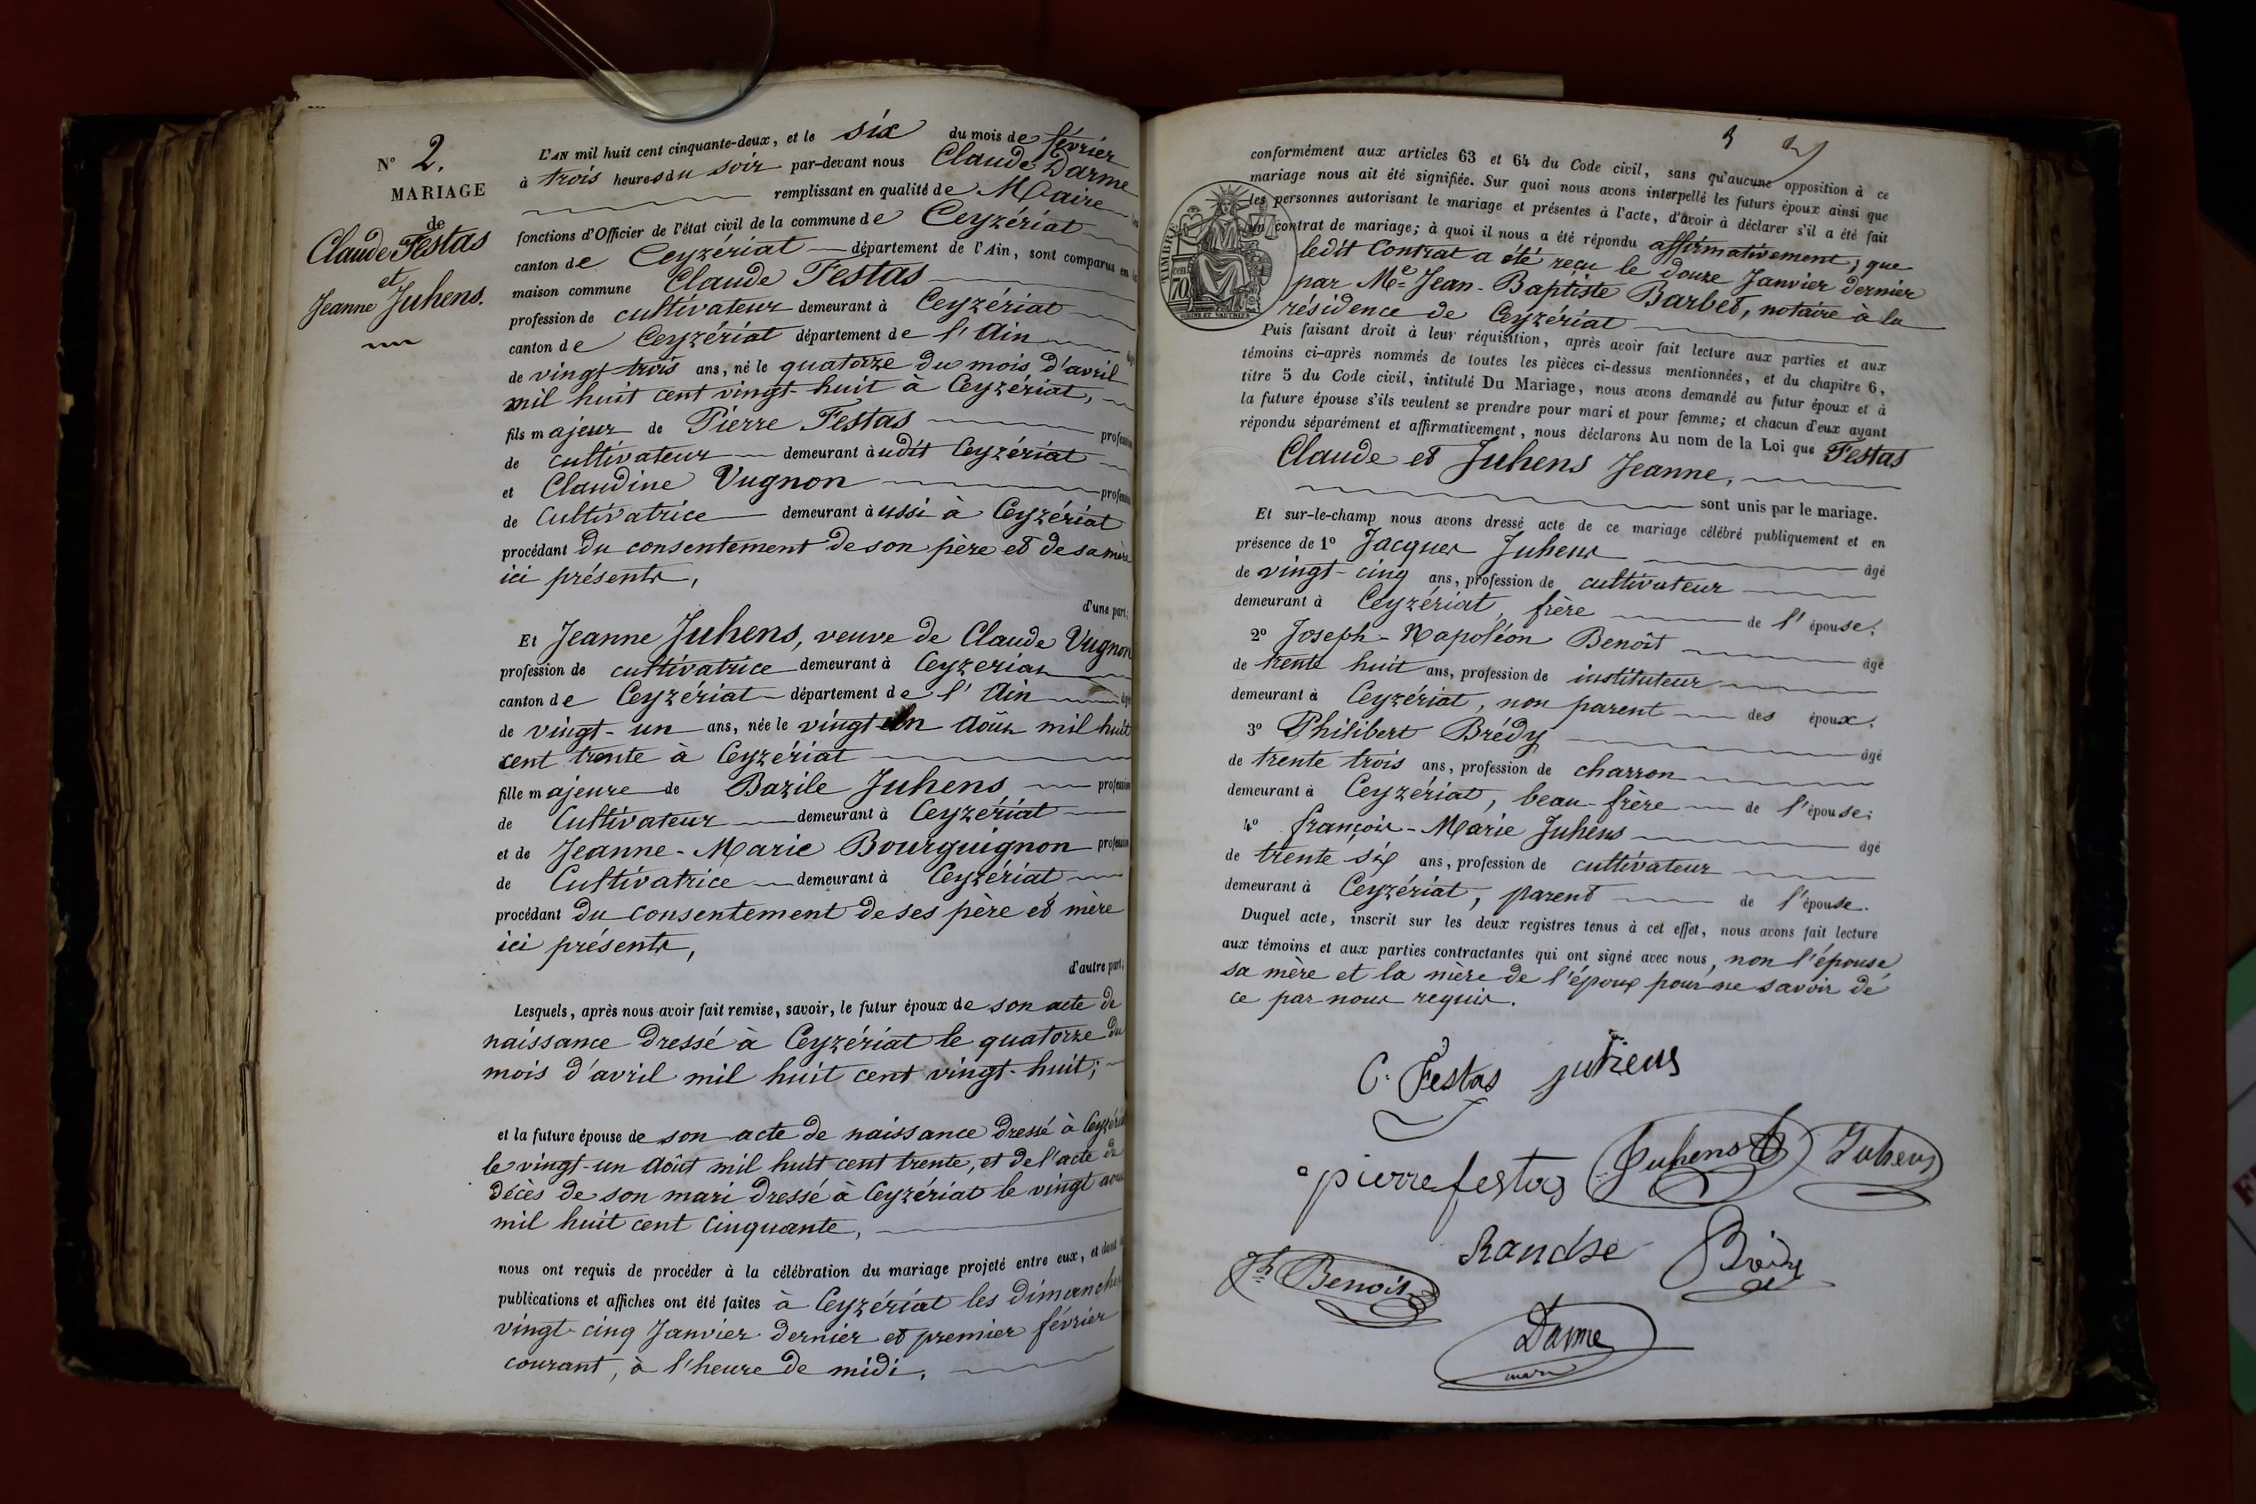 N° 2.
MARIAGE
de
Claude Festas
et
Jeanne Juhens.
L'AN mil huit cent cinquante-deux, et le six du mois de février
à trois heures du soir par-devant nous Claude Darme
remplissant en qualité de Maire les
fonctions d'Officier de l'état civil de la commune de Ceyzériat
canton de Ceyzériat département de l'Ain, sont comparus en la
maison commune Claude Festas
profession de cultivateur demeurant à Ceyzériat
canton de Ceyzériat département de l'Ain âgé
de vingt trois ans, né le quatorze du mois d'avril
mil huit cent vingt-huit à Ceyzériat,
fils majeur de Pierre Festas profession
de cultivateur demeurant audit Ceyzériat
et Claudine Vugnon profession
de Cultivatrice demeurant aussi à Ceyzériat
procédant du consentement de son père et de sa mère
ici présents,
d'une part;
Et Jeanne Juhens, veuve de Claude Vugnon
profession de cultivatrice demeurant à Ceyzériat
canton de Ceyzériat département de l'Ain âgée
de vingt-un ans, née le vingt un Août mil huit
cent trente à Ceyzériat
fille majeure de Bazile Juhens profession
de Cultivateur demeurant à Ceyzériat
et de Jeanne-Marie Bourguignon profession
de Cultivatrice demeurant à Ceyzériat
procédant du consentement de ses père et mère
ici présents,
d'autre part;
Lesquels, après nous avoir fait remise, savoir, le futur époux de son acte de
naissance dressé à Ceyzériat le quatorze du
mois d'avril mil huit cent vingt-huit;
et la future épouse de son acte de naissance dressé à Ceyzériat
le vingt-un Août mil huit cent trente, et de l'acte de
décès de son mari dressé à Ceyzériat le vingt août
mil huit cent cinquante,
nous ont requis de procéder à la célébration du mariage projeté entre eux, et dont les
publications et affiches ont été faites à Ceyzériat les dimanches
vingt-cinq Janvier dernier et premier février
courant, à l'heure de midi,
3
conformément aux articles 63 et 64 du Code civil, sans qu'aucune opposition à ce
mariage nous ait été signifiée. Sur quoi nous avons interpellé les futurs époux ainsi que
les personnes autorisant le mariage et présentes à l'acte, d'avoir à déclarer s'il a été fait
un contrat de mariage; à quoi il nous a été répondu affirmativement; que
ledit Contrat a été reçu le douze Janvier dernier
par Me Jean-Baptiste Barbet, notaire à la
résidence de Ceyzériat
TIMBRE
70
Puis faisant droit à leur réquisition, après avoir fait lecture aux parties et aux
témoins ci-après nommés de toutes les pièces ci-dessus mentionnées, et du chapitre 6,
titre 5 du Code civil, intitulé Du Mariage, nous avons demandé au futur époux et à
la future épouse s'ils veulent se prendre pour mari et pour femme; et chacun d'eux ayant
répondu séparément et affirmativement, nous déclarons Au nom de la Loi que Festas
Claude et Juhens Jeanne,
sont unis par le mariage.
Et sur-le-champ nous avons dressé acte de ce mariage célébré publiquement et en
présence de 1° Jacques Juhens âgé
de vingt-cinq ans, profession de cultivateur
demeurant à Ceyzériat, frère de l'épouse;
2° Joseph-Napoléon Benoît âgé
de trente huit ans, profession de instituteur
demeurant à Ceyzériat, non parent des époux;
3° Philibert Brédy âgé
de trente trois ans, profession de charron
demeurant à Ceyzériat, beau-frère de l'épouse;
4° françois-Marie Juhens âgé
de trente six ans, profession de cultivateur
demeurant à Ceyzériat, parent de l'épouse.
Duquel acte, inscrit sur les deux registres tenus à cet effet, nous avons fait lecture
aux témoins et aux parties contractantes qui ont signé avec nous, non l'épouse
sa mère et la mère de l'époux pour ne savoir de
ce par nous requis.
C. Festas juhens
pierre festas Juhens Juhens
Jh Benoit
Darme
maire